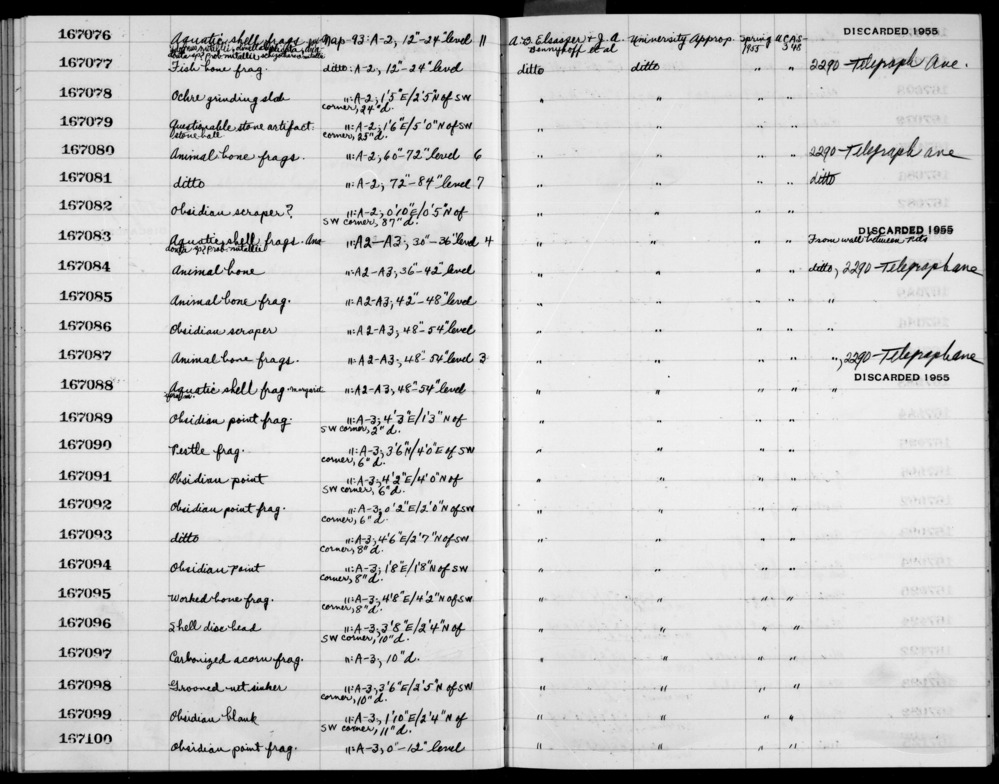 167076 Aquatic shell frags Nap-93: A-2, 12"-24" level 11 A.B. Elsasser & J.A. Bennyhoff et al University Approp. Spring 1955 UCAS 348 DISCARDED 1955
167077 Fish bone frag. ditto: A-2, 12"-24" level ditto ditto " " 2290-Telegraph Ave.
167078 Ochre grinding slab ": A-2; 1'5"E/2'5"N of SW corner, 24"d. " " " "
167079 Questionable stone artifact: stone ball ": A-2; 1'6"E/5'0"N of SW corner, 25"d. " " " "
167080 Animal bone frags. ": A-2; 60-72" level 6 " " " " 2290-Telegraph ave
167081 ditto ": A-2; 72"-84" level 7 " " " " ditto
167082 Obsidian scraper? ": A-2; 0'10"E/0'5"N of SW corner, 87"d. " " " "
167083 Aquatic shell frags. ": A2-A3; 30"-36" level 4 " " " " DISCARDED 1955
From wall between pits
167084 Animal bone ": A2-A3; 36"-42" level " " " " ditto, 2290-Telegraph ave
167085 Animal bone frag. ": A2-A3; 42"-48" level " " " " "
167086 Obsidian scraper ": A2-A3; 48"-54" level " " " " "
167087 Animal bone frags. ": A2-A3; 48"-54" level 3 " " " " ", 2290-Telegraph ave
167088 Aquatic shell frag. ": A2-A3; 48"-54" level " " " " " DISCARDED 1955
167089 Obsidian point frag. ": A-3; 4'3"E/1'3"N of SW corner, 2"d. " " " "
167090 Pestle frag. ": A-3; 3'6"N/4'0"E of SW corner, 6"d. " " " "
167091 Obsidian point ": A-3; 4'2"E/4'0"N of SW corner, 6"d. " " " "
167092 Obsidian point frag. ": A-3; 0'2"E/2'0"N of SW corner, 6"d. " " " "
167093 ditto ": A-3; 4'6"E/2'7"N of SW corner, 8"d. " " " "
167094 Obsidian point ": A-3; 1'8"E/1'8"N of SW corner, 8"d. " " " "
167095 Worked bone frag. ": A-3; 4'8"E/4'2"N of SW corner, 8"d. " " " "
167096 Shell disc bead ": A-3; 3'8"E/2'4"N of SW corner, 10"d. " " " "
167097 Carbonized acorn frag. ": A-3; 10"d. " " " "
167098 Grooved net sinker ": A-3; 3'6"E/2'5"N of SW corner, 10"d. " " " "
167099 Obsidian blank ": A-3; 1'10"E/2'4"N of SW corner, 11"d. " " " "
167100 Obsidian point frag. ": A-3; 0"-12" level " " " "